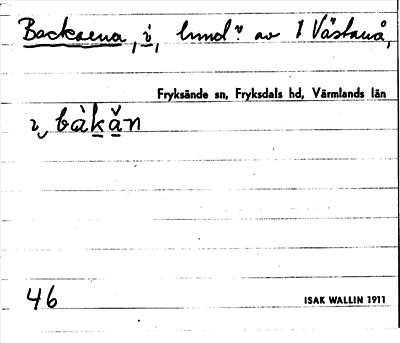 Backarna, i, hmd av 1 Västanå,
Fryksände sn, Fryksdals hd, Värmlands län
i, bàkǎn
46
ISAK WALLIN 1911